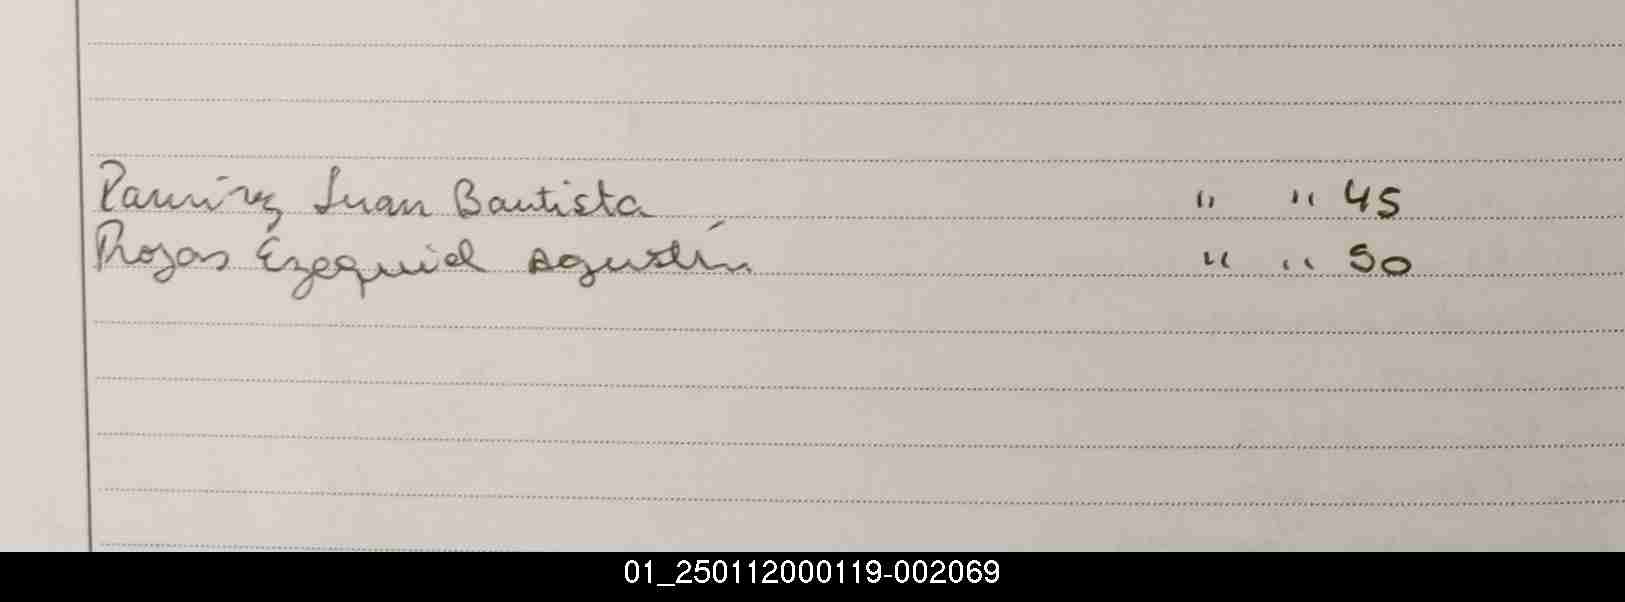 Ramírez Juan Bautista " " 45
Rojas Ezequiel Agustín " " 50
01_250112000119-002069